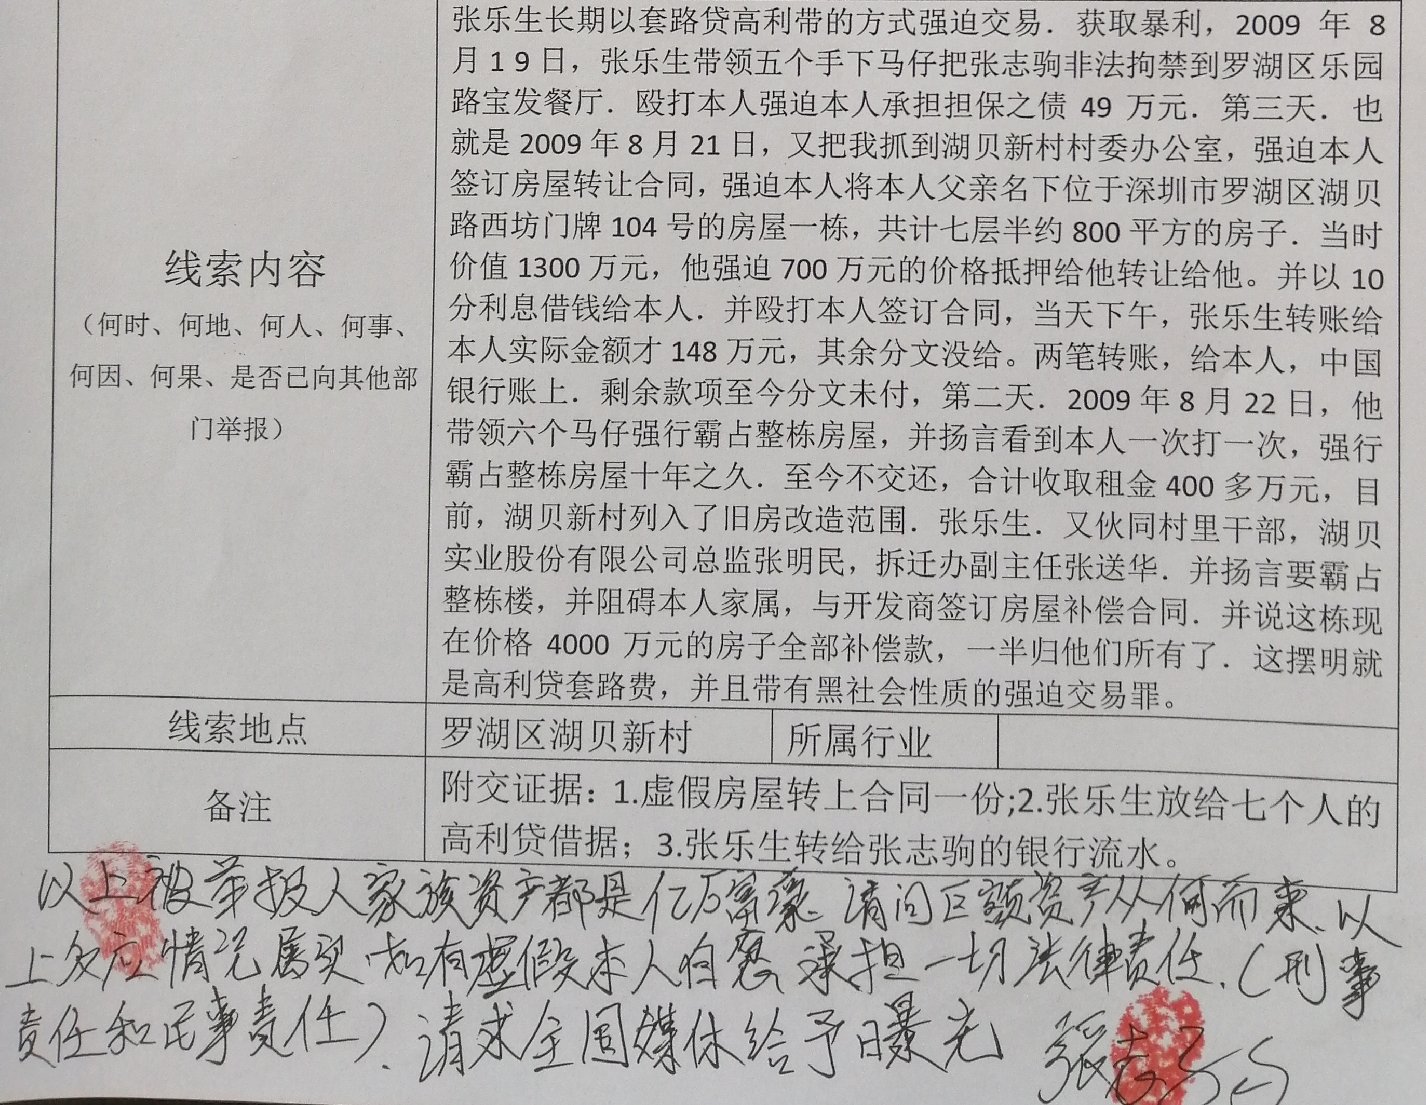 张乐生长期以套路贷高利带的方式强迫交易．获取暴利，2009 年 8
月19日，张乐生带领五个手下马仔把张志驹非法拘禁到罗湖区乐园
路宝发餐厅．殴打本人强迫本人承担担保之债 49 万元．第三天．也
就是 2009 年 8 月 21 日，又把我抓到湖贝新村村委办公室，强迫本人
签订房屋转让合同，强迫本人将本人父亲名下位于深圳市罗湖区湖贝
路西坊门牌 104 号的房屋一栋，共计七层半约 800 平方的房子．当时
价值 1300 万元，他强迫 700 万元的价格抵押给他转让给他。并以 10
分利息借钱给本人．并殴打本人签订合同，当天下午，张乐生转账给
本人实际金额才 148 万元，其余分文没给。两笔转账，给本人，中国
银行账上．剩余款项至今分文未付，第二天．2009 年 8 月 22 日，他
带领六个马仔强行霸占整栋房屋，并扬言看到本人一次打一次，强行
霸占整栋房屋十年之久．至今不交还，合计收取租金 400 多万元，目
前，湖贝新村列入了旧房改造范围．张乐生．又伙同村里干部，湖贝
实业股份有限公司总监张明民，拆迁办副主任张送华．并扬言要霸占
整栋楼，并阻碍本人家属，与开发商签订房屋补偿合同．并说这栋现
在价格 4000 万元的房子全部补偿款，一半归他们所有了．这摆明就
是高利贷套路费，并且带有黑社会性质的强迫交易罪。
线索内容
（何时、何地、何人、何事、
何因、何果、是否已向其他部
门举报）
线索地点 罗湖区湖贝新村 所属行业
备注
附交证据：1.虚假房屋转上合同一份;2.张乐生放给七个人的
高利贷借据；3.张乐生转给张志驹的银行流水。
以上被举报人家族资产都是亿万富豪 请问巨额资产从何而来．以
上反应情况属实 如有虚假本人自愿承担一切法律责任．（刑事
责任和民事责任）．请求全国媒体给予曝光 张志驹